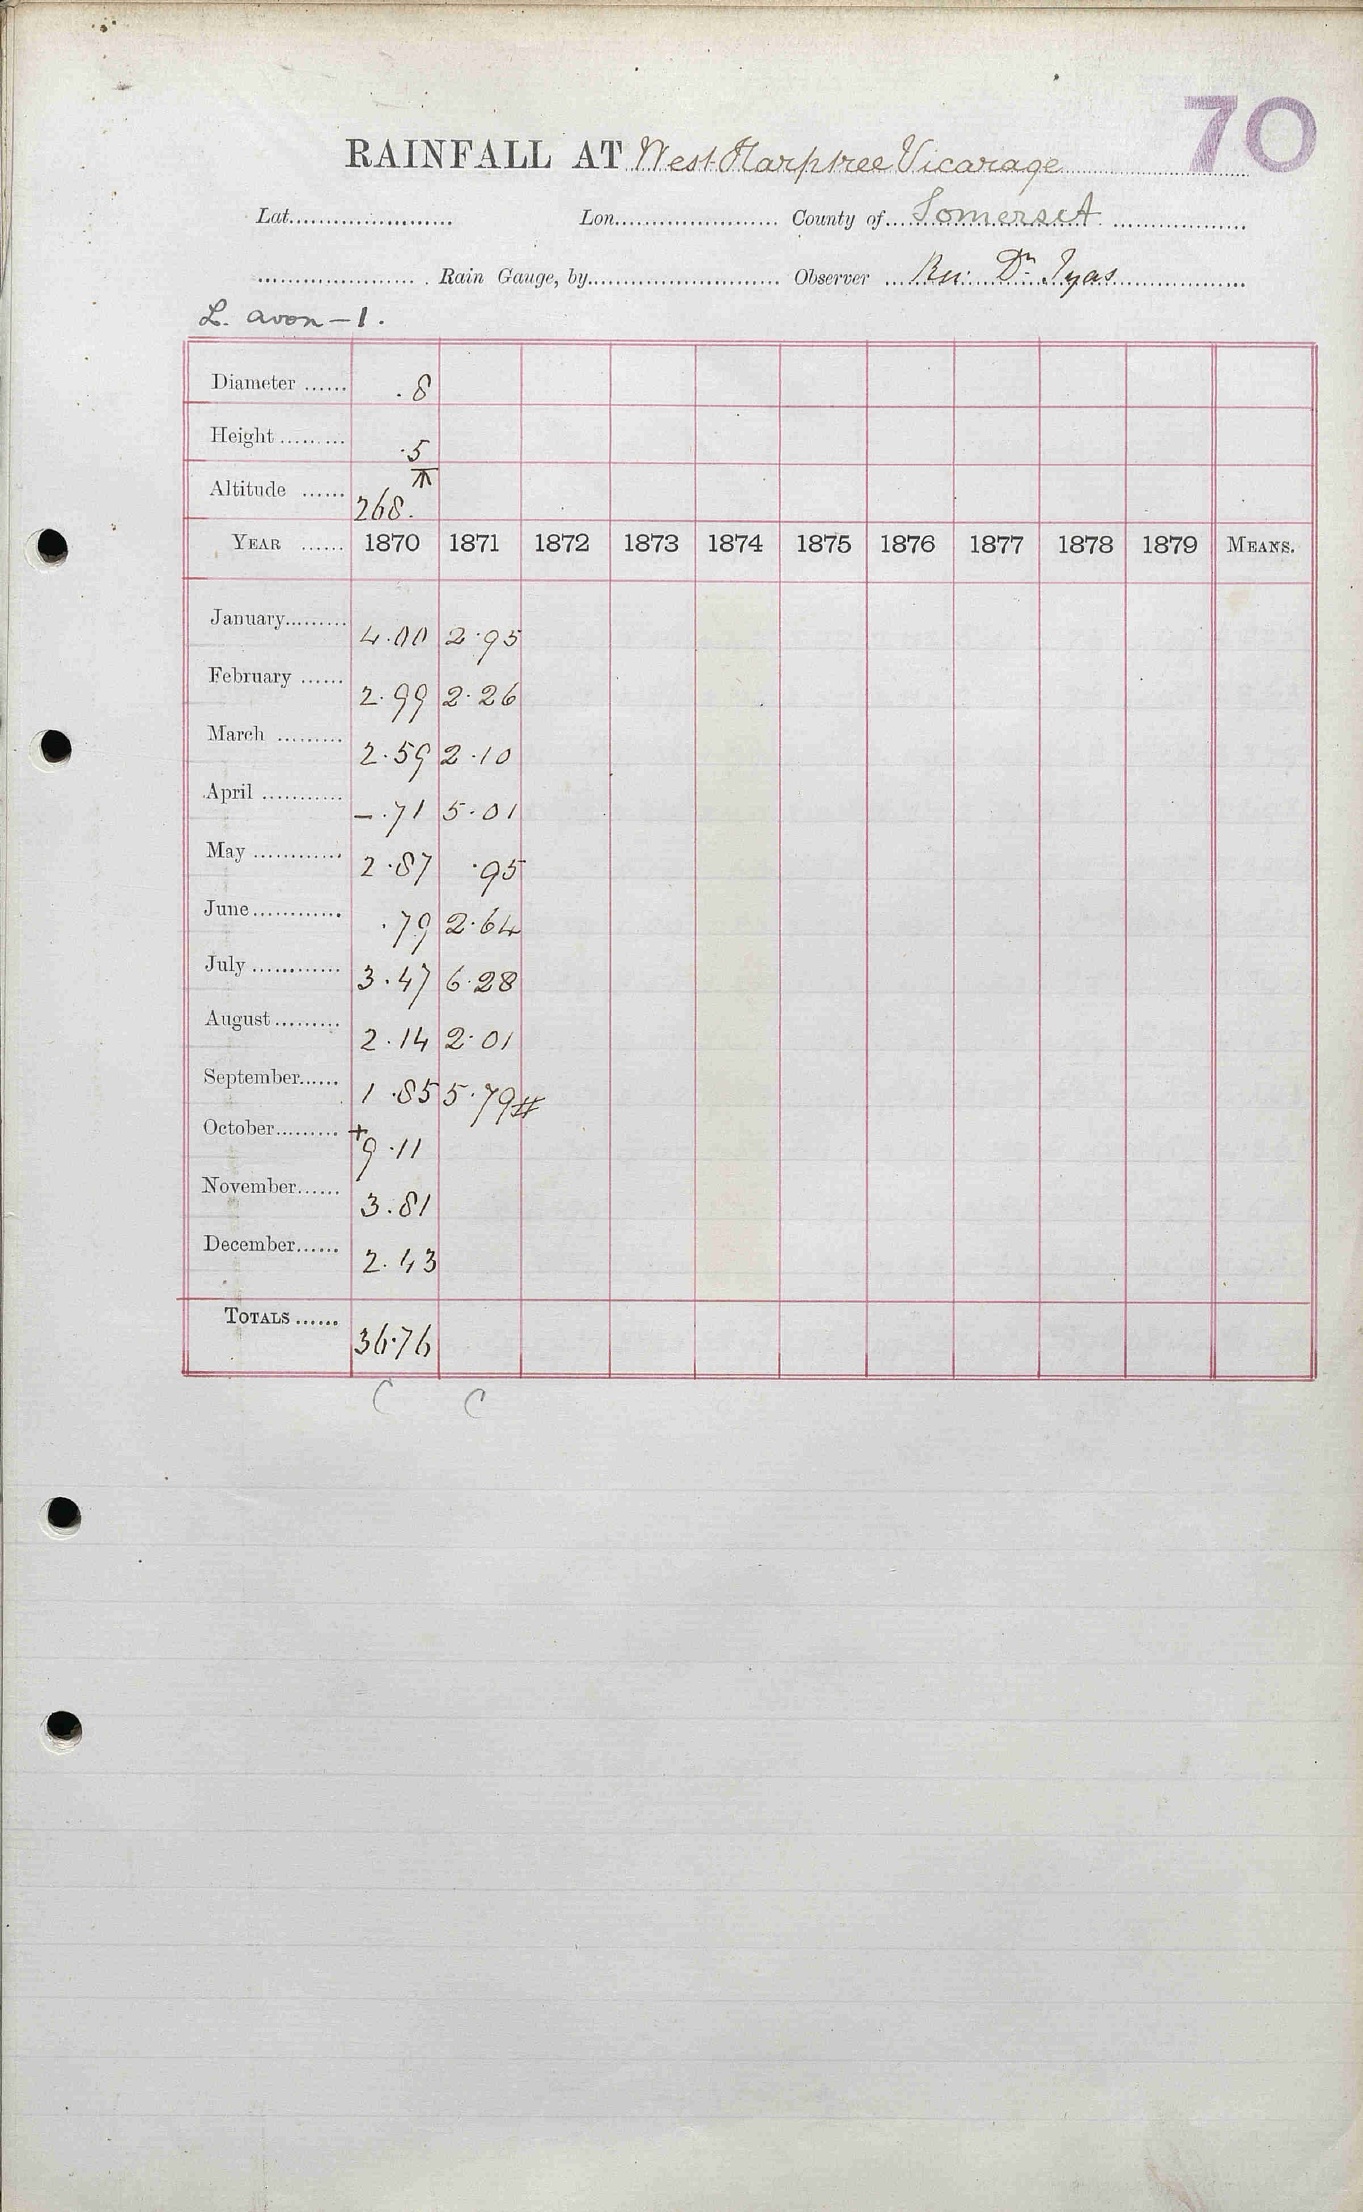 70
RAINFALL AT West Harptree Vicarage
Lat. Lon. County of Somerset
Rain Gauge, by Observer Rev. Dr. Tyas
L. avon - 1.
Diameter ...... .8
Height ......... .5
Altitude ...... 268.
YEAR ...... 1870 1871 1872 1873 1874 1875 1876 1877 1878 1879 MEANS.
January......... 4.00 2.95
February ...... 2.99 2.26
March ......... 2.59 2.10
April ........... -.71 5.01
May ............ 2.87 .95
June............ .79 2.64
July ............ 3.47 6.28
August......... 2.14 2.01
September...... 1.85 5.79#
October......... +9.11
November...... 3.81
December...... 2.43
TOTALS ...... 36.76
C C